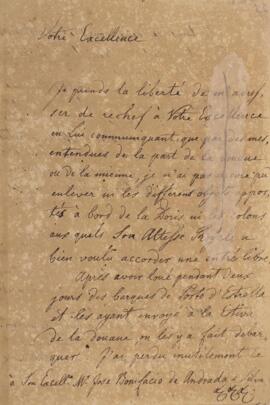 Votre Excellence
Je prends la liberté de m'adres-
ser de rechef à Votre Excellence
en Lui communiquant, que par des mes
entendues de la part de la douane
ou de la mienne, je n'ai pas encore pu
enlever ni les différens objets appor-
tés à bord de la Doris ni les colons
aux quels Son Altesse Royale a
bien voulu accorder une entrée libre.
Après avoir loué pendant deux
jours des barques de Porto d'Estrella
et les ayant envoyé à la
de la douane, on les y a fait debar-
quer. J'ai perdu inutilement ce
à Son Excell. Mr. José Bonifacio de Andrada e Silva